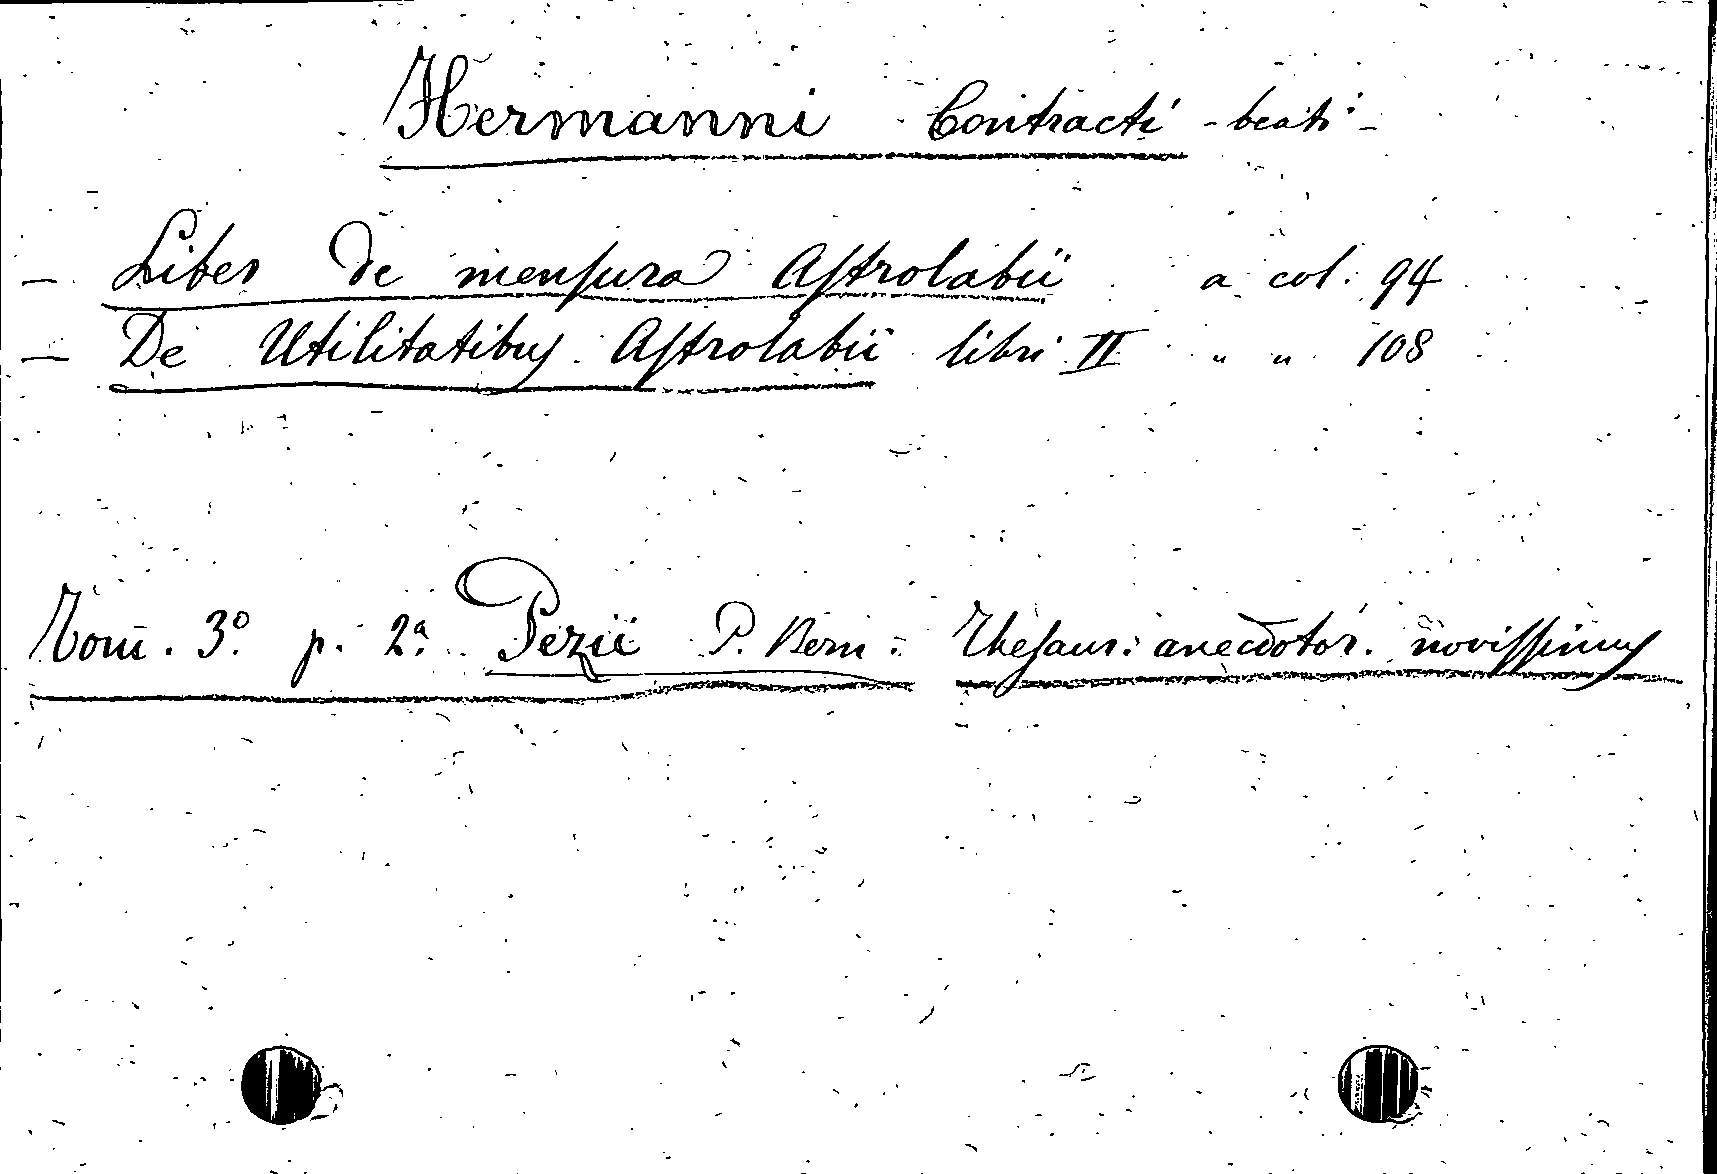 Hermanni Contracti - beati -
- Liber de mensura Astrolabii a col: 94
- De Utilitatibus Astrolabii libri II " " 108
Tom. 3º p. 2ª Pezii P. Bern: Thesaur: anecdotor. novissimus